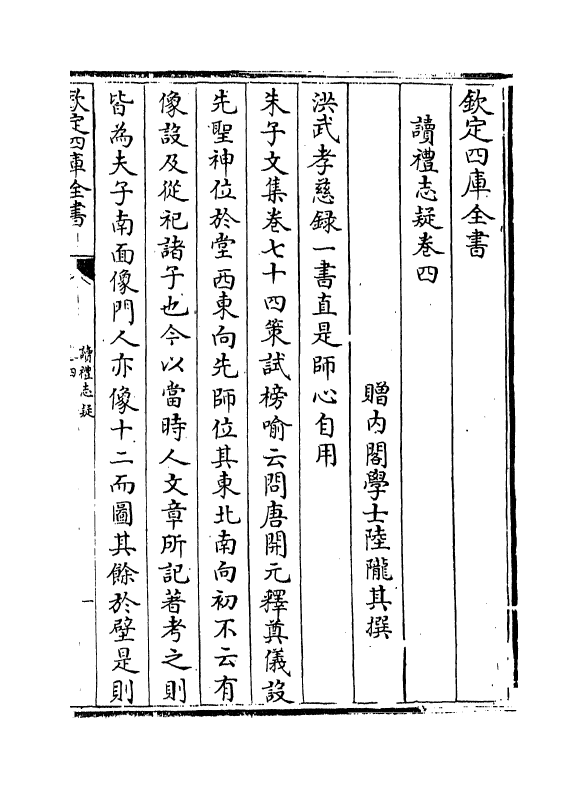 欽定四庫全書
讀禮志疑卷四
贈內閣學士陸隴其撰
洪武孝慈録一書直是師心自用
朱子文集卷七十四策試榜喻云問唐開元釋奠儀設
先聖神位於堂西東向先師位其東北南向初不云有
像設及從祀諸子也今以當時人文章所記著考之則
皆為夫子南面像門人亦像十二而圖其餘於壁是則
欽定四庫全書
讀禮志疑
卷四
一